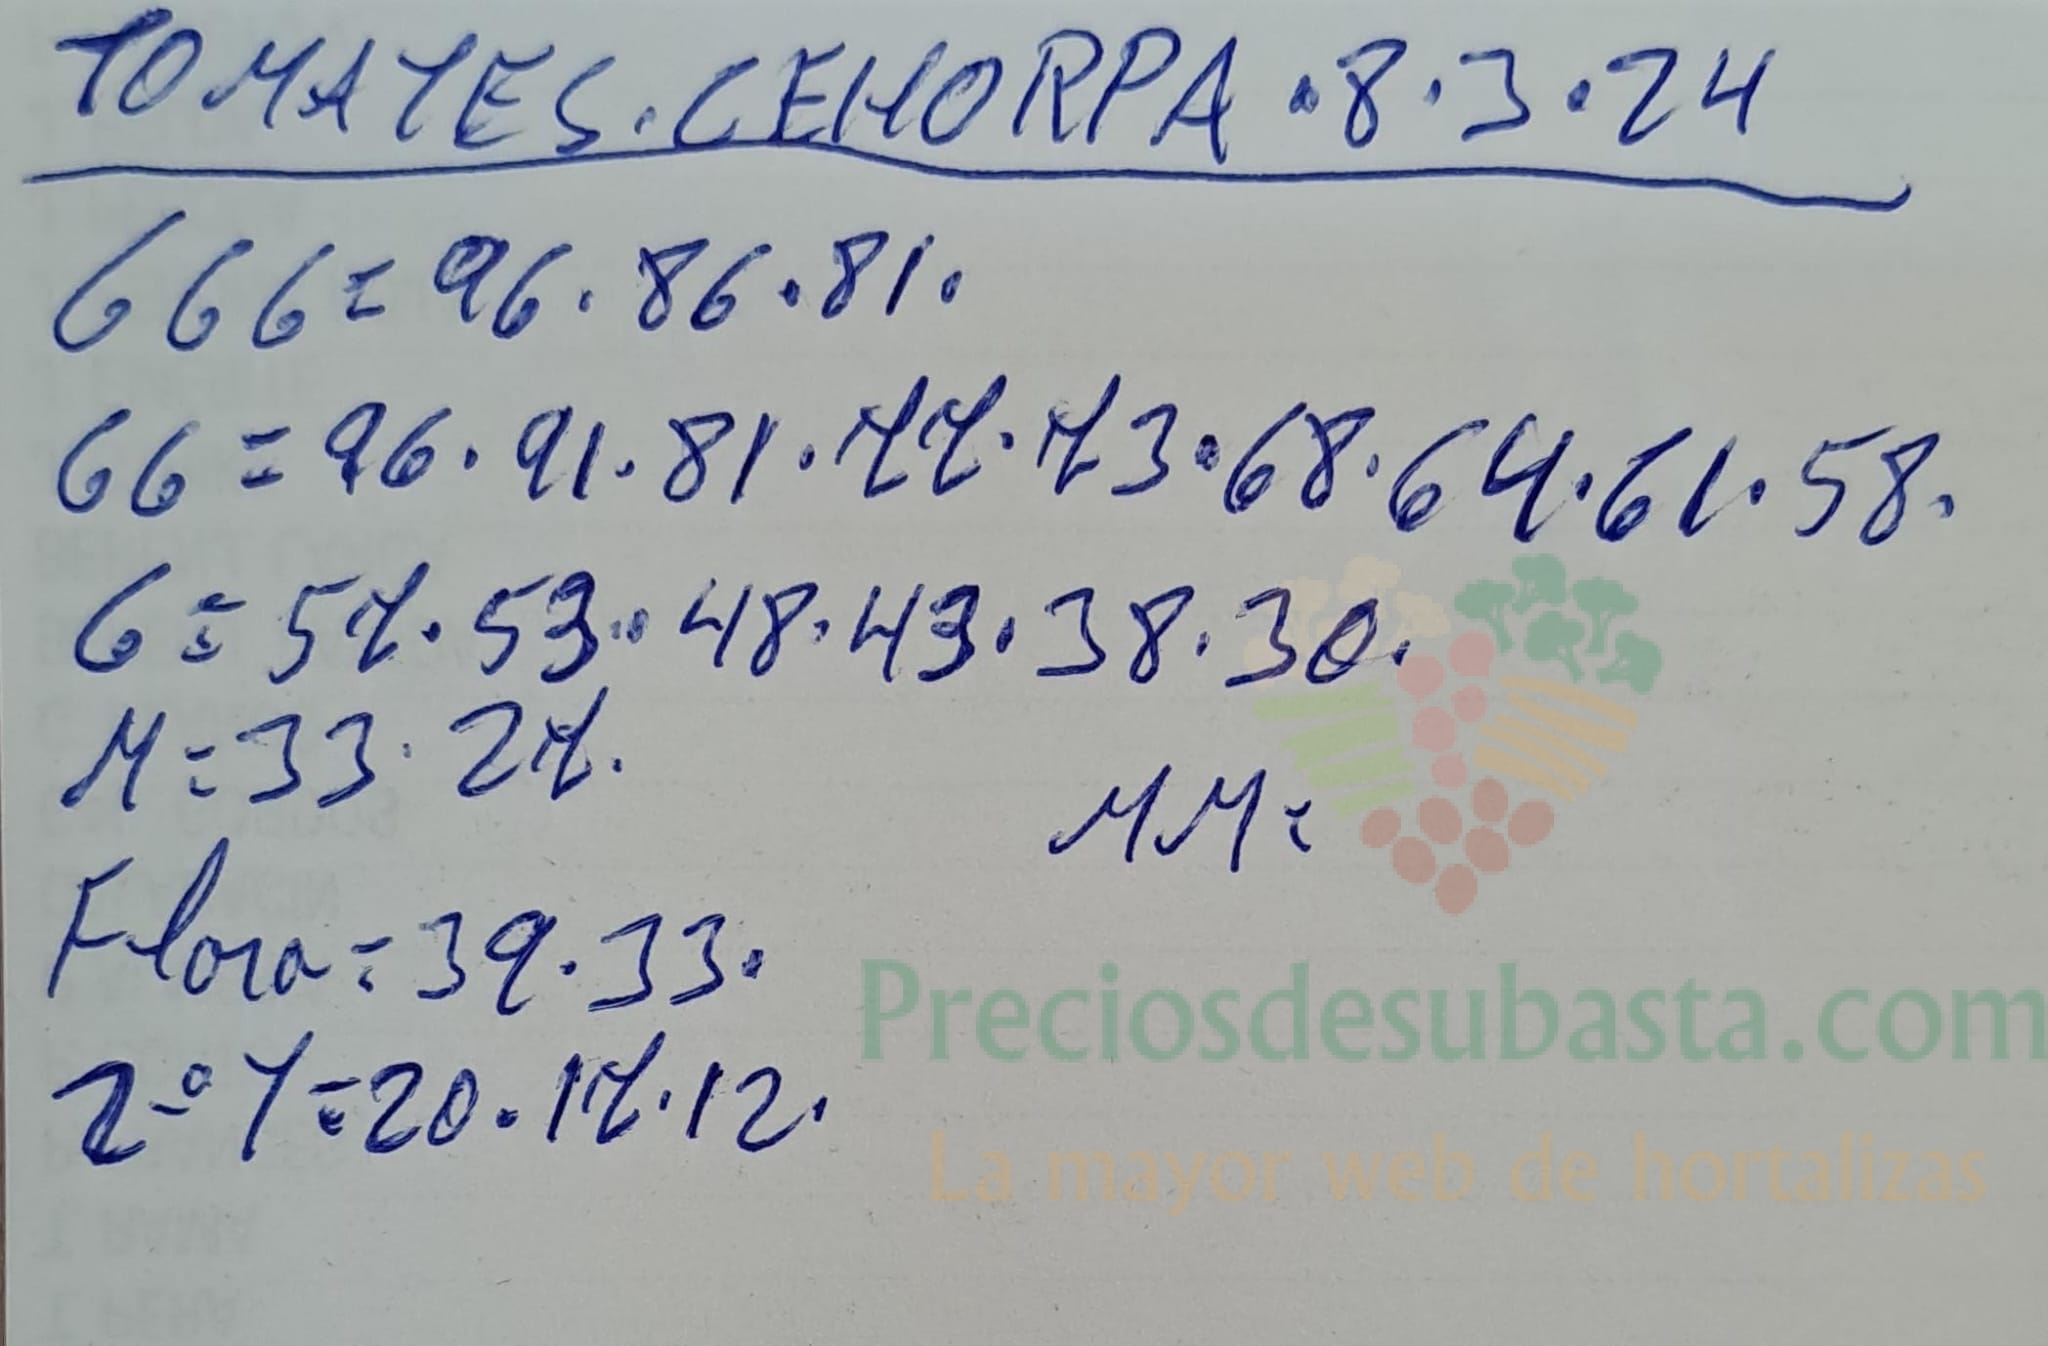 TOMATES.CEHORPA.8.3.24
GGG=96.86.81.
GG=96.91.81.77.73.68.64.61.58.
G=57.53.48.43.38.30.
M=33.27.
MM=
Flora=39.33.
2ºT=20.17.12.
Preciosdesubasta.com
La mayor web de hortalizas